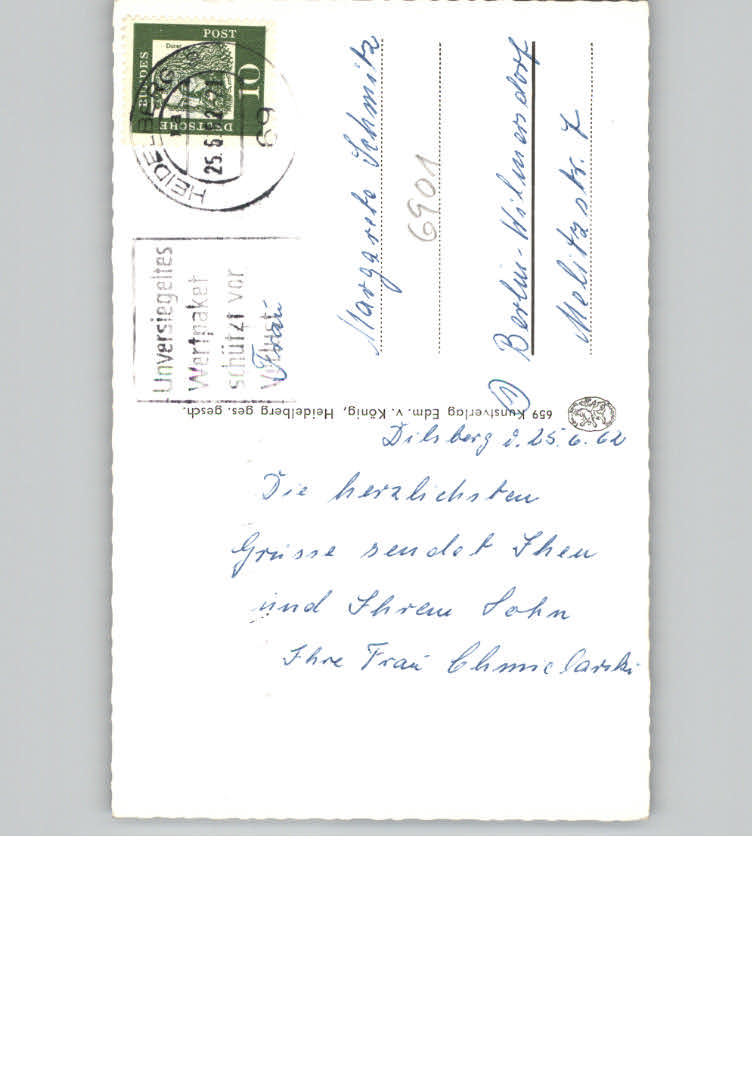 DEUTSCHE BUNDESPOST
Dürer
10
HEIDELBERG
25.6.62
69
Unversiegeltes
Wertpaket
schützt vor
Verlust
Frau
Margarete Schmitz
6901
Berlin-Wilmersdorf
Melitzstr. 7
659 Kunstverlag Edm. v. König, Heidelberg ges. gesch.
Dilsberg d. 25.6.62
Die herzlichsten
Grüsse sendet Ihen
und Ihrem Sohn
Ihre Frau Chmielarski